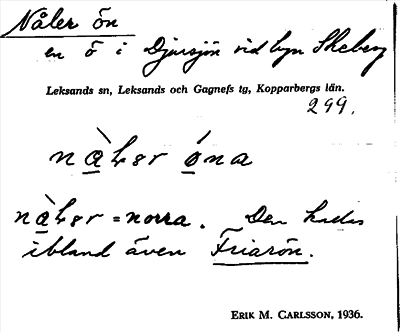 Nåler ön
en ö i Djursjön vid byn Skeberg
Leksands sn, Leksands och Gagnefs tg, Kopparbergs län.
299.
nàLər óna
nàLər = norra. Den kallas
ibland även Friarön.
ERIK M. CARLSSON, 1936.